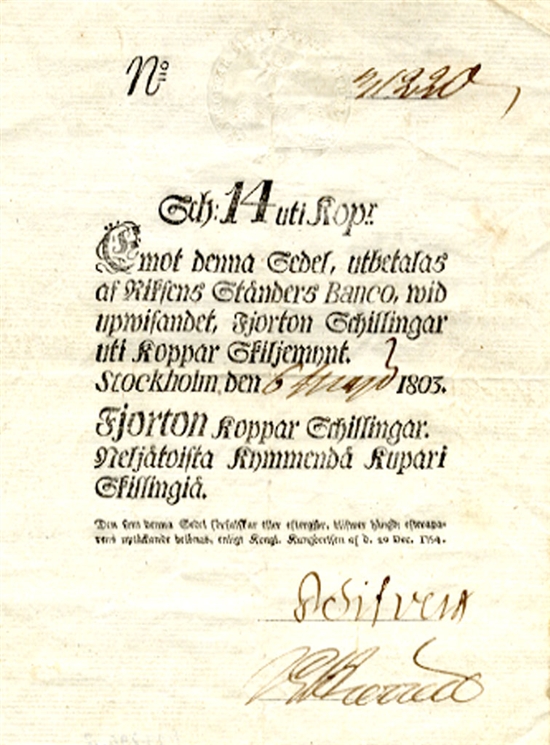 Nº 31220
Sch: 14 uti Kopr.
Emot denna Sedel, utbetalas
af Riksens Ständers Banco, wid
upwisandet, Fjorton Schillingar
uti Koppar Skiljemynt.
Stockholm, den 6 1803.
Fjorton Koppar Schillingar.
Neljätoista Kymmendä Kupari
Skillingiä.
Den som denna Sedel förfalskar eller eftergiör, blifwer hängd; efterapa-
rens uptäckande belönas, enligt Kongl. Kungörelsen af d. 20 Dec. 1754.